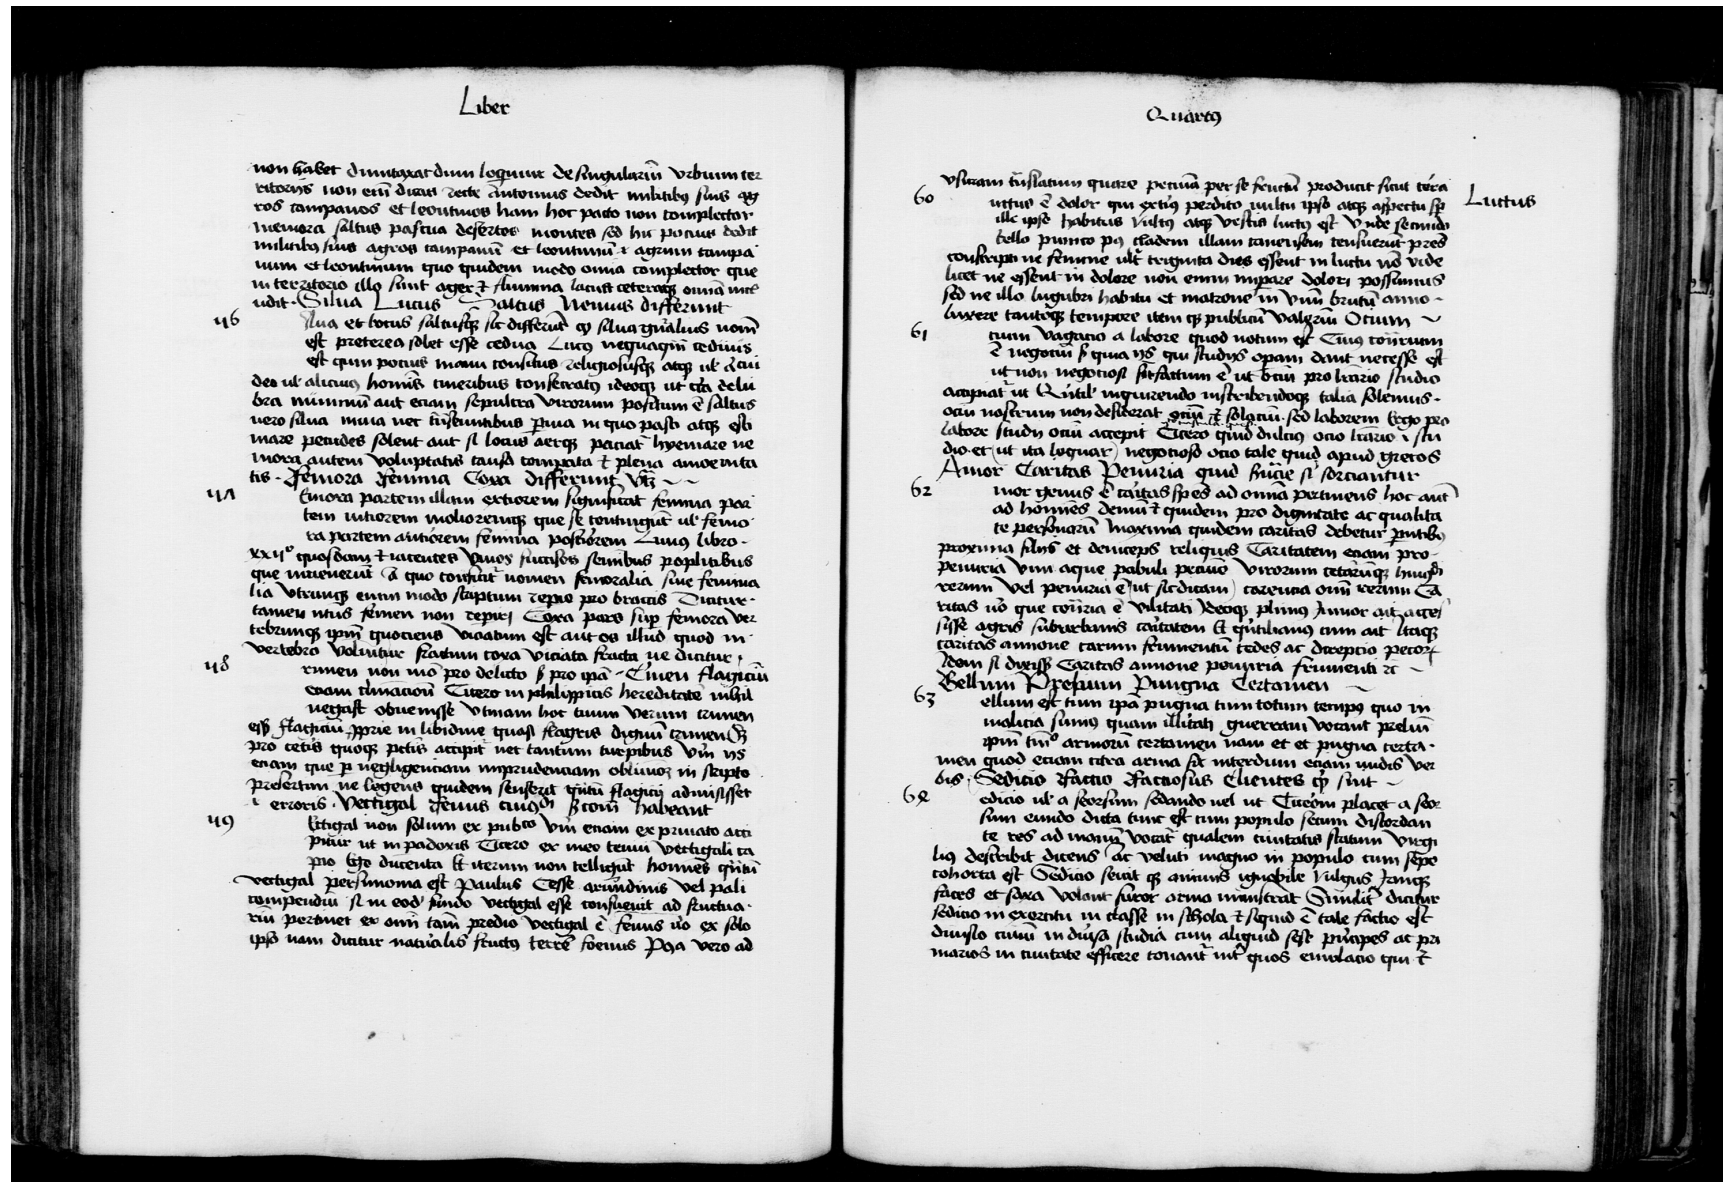 Liber
non habet dumtaxat dum loquitur de singularium urbium ter
ritorijs non enim dicam recte Antonius dedit militibus suis ag
ros campanos et leontinos nam hoc pacto non complector
nemora saltus pascua desertos montes sed hic potius dedit
militibus suis agros campanum et leontinum agrum campa
num et leontinum quo quidem modo omnia complector que
in territorio illo sunt ager et flumina lacus ceteraque omnia
Silua Lucus Saltus Nemus differunt
56
ilua et lucus saltusque sic differunt silua generalius nomen
est preterea solet esse cedua Lucus nequaquam ceduus
est quin potius manu consitus religiosusque atque uel
deo uel alicuius hominis cineribus consecratus ideoque ut delu
bra numinum aut eciam sepulcra virorum positum est saltus
uero silua inuia nec transeuntibus peruia in quo pasci atque esti
uare pecudes solent aut si locus aerque paciatur hyemare ne
mora autem voluptatis causa comparata et plena amoenita
tis. Femora Femina Coxa differunt
57
Emora partem illam exteriorem significat femina par
tem interiorem molioremque que se contingunt uel femo
ra partem anteriorem femina posteriorem Liuius libro
xxii° quosdam et iacentes viuos succisos feminibus poplitibus
que inuenerunt A quo nomen femoralia siue femina
lia utrunque enim modo scriptum repperio pro braccis Dicitur
tamen femen non Coxa pars super femora ver
tebrumque ipsum quociens viciatum est aut os illud quod in
vertebro voluitur fractum coxa viciata fracta ue dicitur
58
rimen non modo pro delicto Crimen flagicium
eciam Cicero in philippicis hereditatem mihi
negasti obuenisse utinam hoc tuum verum crimen
esset flagicium proprie in libidine quasi flagris dignum crimen
pro ceteris quoque peccatis accipitur nec tantum turpibus verum ijs
eciam que per negligenciam imprudenciam in scripto
presertim ne legens quidem senserit quantum flagicij admisisset
erroris. Vectigal Fenus habeant
59
Ectigal non solum ex publico verum eciam ex priuato acci
pitur ut in Cicero ex meo tenui vectigali
ducenta et iterum non intelligunt homines quantum
vectigal persimonia est Paulus Cesse arundinis vel pali
compendium si in eodem fundo vectigal esse consueuit ad fructua
rium pertinet ex omni predio vectigal est fenus uero ex solo
ipso nam dicitur naturalis fructus terre foenus Postea vero ad
Quartus
usuram translatum quare pecunia per se fructum producit sicut terra
60
Luctus
uctus est dolor qui exterius perdito uultu ipso atque aspectu
ille ipse habitus vultus atque vestis luctus est Unde secundo
bello punico post cladem illam canensem censuerunt patres
conscripti ne femine ultra triginta dies essent in luctu non vide
licet ne essent in dolore non enim imperare dolori possumus
sed ne illo lugubri habitu et matrone in unum brutum anno
luxere tantoque tempore item publicum valerium Ocium
61
cium vagacio a labore quod notum est Cuius contrarium
est negocium quia ijs qui studijs operam dant necesse est
ut non negociosi sint factum est ut ocium pro literario studio
accipiatur ut Quintilianus inquirendo inscribendoque talia solemus
ocium nostrum non desiderat ocium et solacium sed laborem Ergo pro
labore studij ocium accepit Cicero quid dulcius ocio literario i stu
dio et (ut ita loquar) negocioso ocio tale quid apud grecos
Amor Caritas Penuria quid si sorciantur
62
mor genus est caritas species ad omnia pertinens hoc autem
ad homines demum et quidem pro dignitate ac qualita
te personarum Maxima quidem caritas debetur parentibus
proxima filijs et deinceps reliquis Caritatem eciam pro
penuria vini aque pabuli pecunie virorum ceterarumque
rerum vel penuria est (ut sic dicam) carencia omnium rerum Ca
ritas uero que contraria est vilitati Ideoque plinius Iunior ait
sisse agris suburbanis caritatem et quintilianus cum ait Itaque
caritas annone carum frumentum cedes ac direptio
Idem si dixisset Caritas annone penuria frumenti
Bellum Prelium Pungna Certamen
63
ellum est tum ipsa pugna tum totum tempus quo in
malicia sumus quam illiterati guerram vocant prelium
ipsum armorum certamen nam et et pugna certa
men quod eciam citra arma fit interdum eciam nudis ver
bis. Sedicio Factio Factiosus Clientes sint
64
edicio uel a seorsum sedando uel ut Ciceroni placet a seor
sum eundo dicta tunc est cum populo secum discordan
te res ad vocatur qualem ciuitatis statum Virgi
lius describit dicens ac veluti magno in populo cum sepe
cohorta est Sedicio seuit animis ignobile vulgus Iamque
faces et saxa volant furor arma ministrat Similiter dicitur
sedicio in exercitu in classe in schola et siquid est tale factio est
diuisio ciuium in diuersa studia cum aliquid sese principes ac pri
marios in ciuitate efficere conantur inter quos emulacio qui et